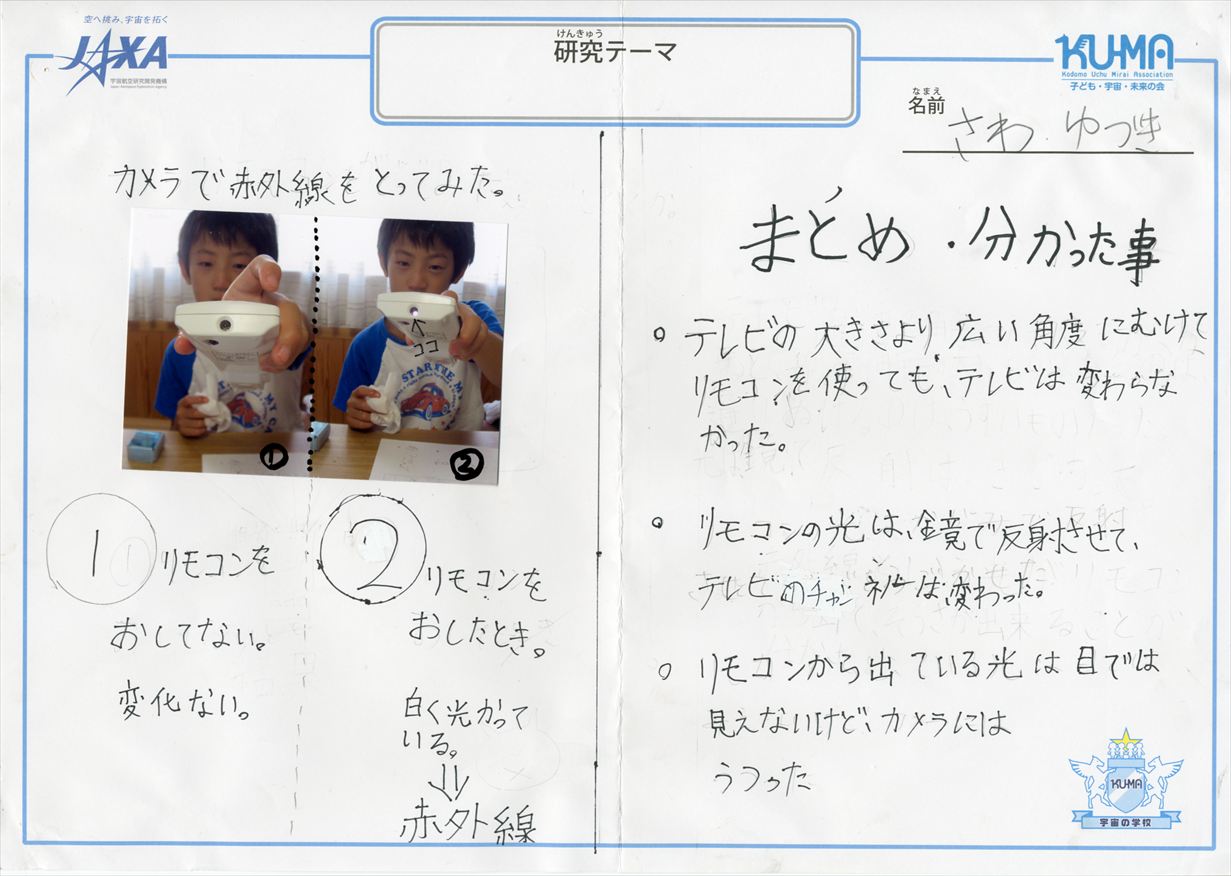 空へ挑み、宇宙を拓く
JAXA
宇宙航空研究開発機構
Japan Aerospace Exploration Agency
けんきゅう
研究テーマ
KU-MA
Kodomo Uchu Mirai Association
子ども・宇宙・未来の会
なまえ
名前
さわ ゆづき
カメラで赤外線をとってみた。
ココ
STAR
MY
①
②
1 リモコンを
おしてない。
変化ない。
2 リモコンを
おしたとき。
白く光かって
いる。
赤外線
まとめ・分かった事
○ テレビの大きさより、広い角度にむけて
リモコンを使っても、テレビは変わらな
かった。
○ リモコンの光は、鏡で反射させて、
テレビのチャンネルは変わった。
○ リモコンから出ている光は目では
見えないけど、カメラには
うつった
KUMA
宇宙の学校